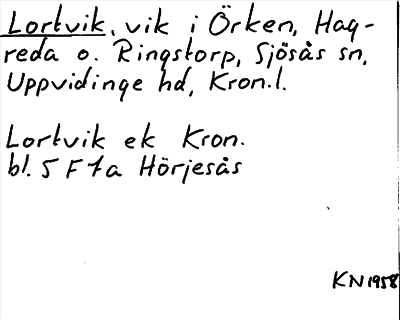 Lortvik, vik i Örken, Hag-
reda o. Ringstorp, Sjösås sn,
Uppvidinge hd, Kron.l.
Lortvik ek Kron.
bl. 5 F 7a Hörjesås
KN 1958